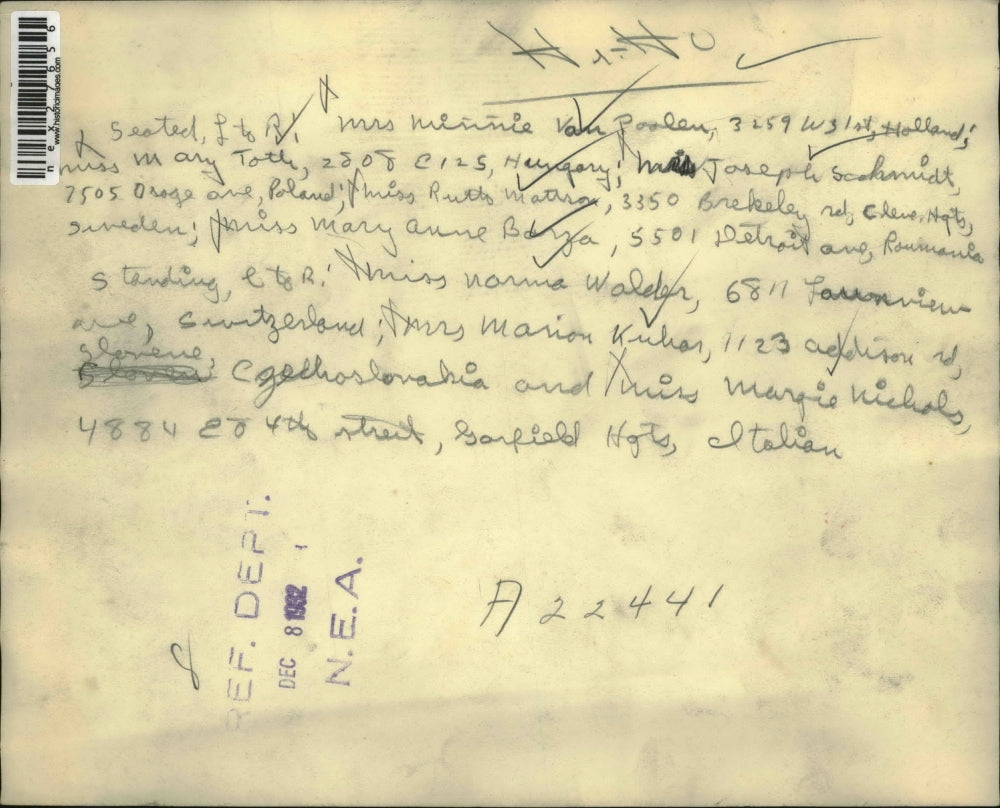 Seated, L to R: Mrs Minnie Van Poolen, 3259 W31st, Holland;
Miss Mary Toth, 2808 E125, Hungary; Joseph Scohmidt,
7505 Osage ave, Poland; Miss Ruth Mattson, 3350 Brekeley rd, Cleve. Hgts,
Sweden; Miss Mary Anne Bazza, 5501 Detroit ave, Roumania
Standing, L to R: Miss Norma Walder, 6811
ave, Switzerland; Mrs Marion Kuhar, 1123 addison rd,
Slovene,
Czelhoslovakia and Miss Margie Nichols,
4884 E84th street, Garfield Hgts, Italian
A22441
8
REF. DEPT.
DEC 8 1932
N.E.A.
nex27656
www.historicimages.com